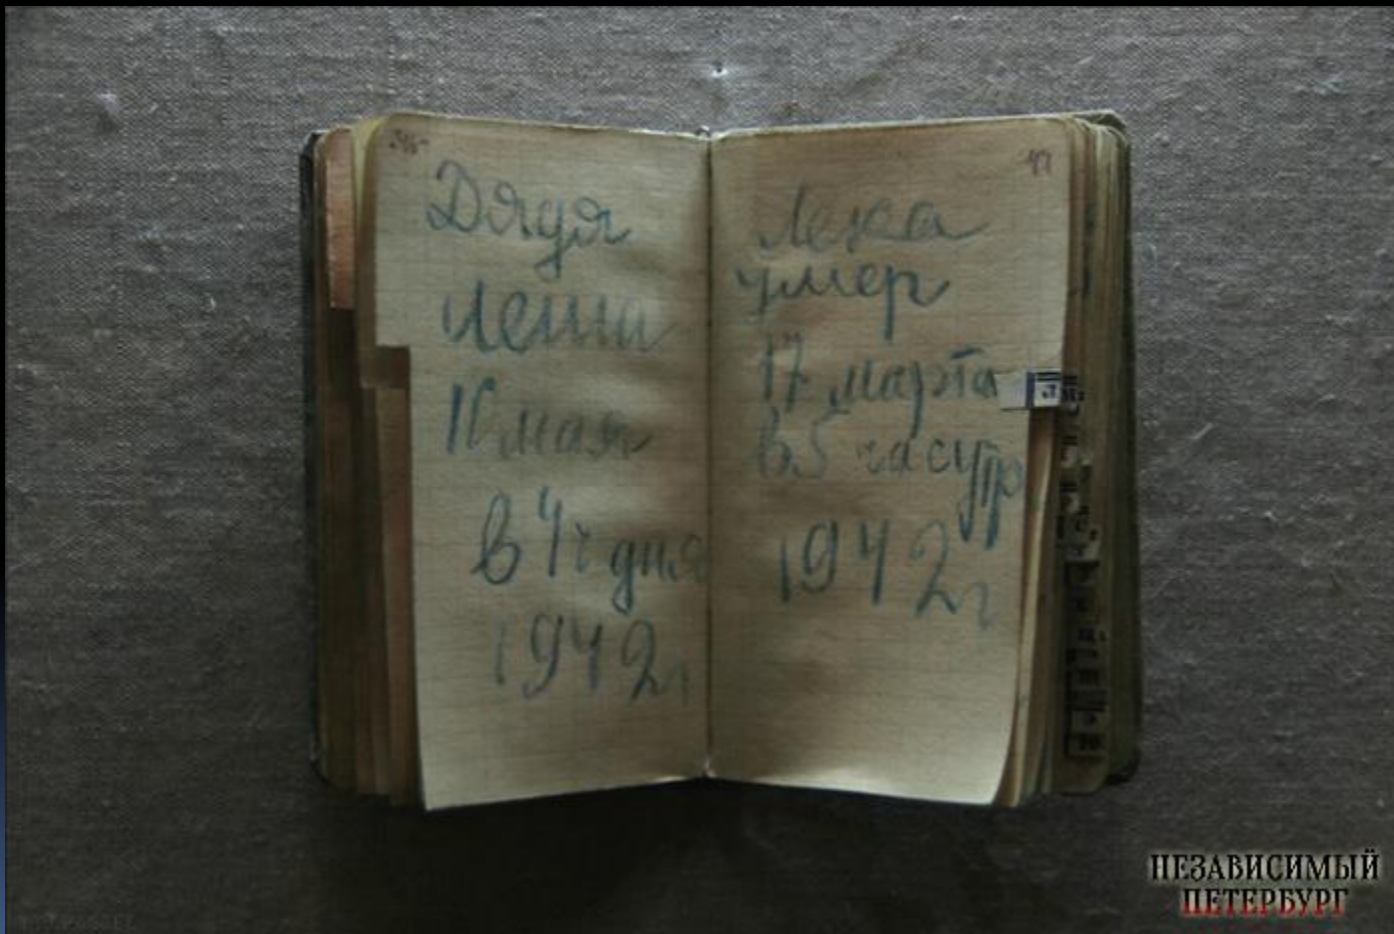 Дядя
Леша
10 мая
в 4ч дня
1942г
Лека
умер
17 марта
в 5 часутр
1942г
41
Л
НЕЗАВИСИМЫЙ
ПЕТЕРБУРГ